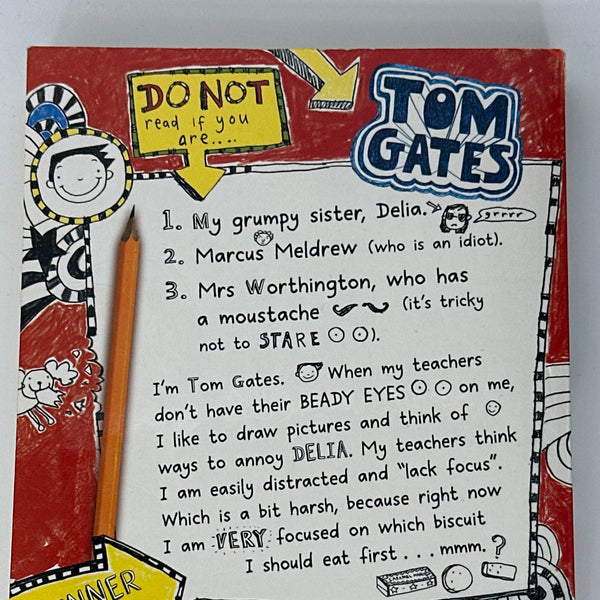 DO NOT
read if you
are....
TOM
GATES
1. My grumpy sister, Delia.
grrrr
2. Marcus Meldrew (who is an idiot).
3. Mrs Worthington, who has
a moustache (it's tricky
not to STARE).
I'm Tom Gates. When my teachers
don't have their BEADY EYES on me,
I like to draw pictures and think of
ways to annoy DELIA. My teachers think
I am easily distracted and "lack focus".
Which is a bit harsh, because right now
I am VERY focused on which biscuit
I should eat first . . . mmm. ?